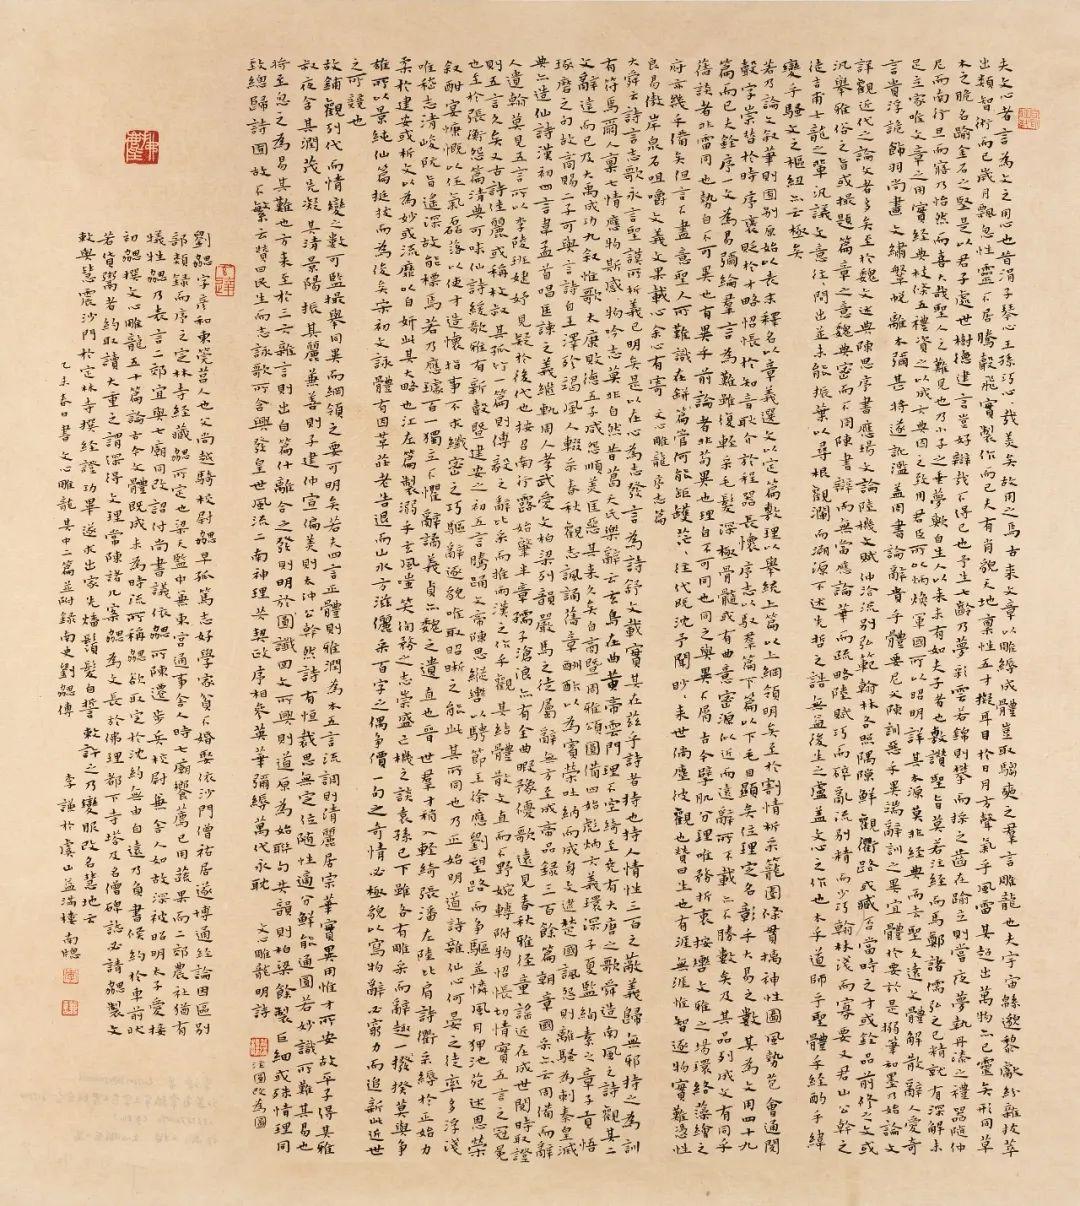 夫文心者言為文之用心也昔涓子琴心王孫巧心心哉美矣故用之焉古來文章以雕縟成體豈取騶奭之羣言雕龍也夫宇宙緜邈黎獻紛雜拔萃
出類智術而已歲月飄忽性靈不居騰聲飛實製作而已夫有肖貌天地稟性五才擬耳目於日月方聲氣乎風雷其超出萬物亦已靈矣形同草
木之脆名踰金石之堅是以君子處世樹德建言豈好辯哉不得已也予生七齡乃夢彩雲若錦則攀而採之齒在踰立則嘗夜夢執丹漆之禮器隨仲
尼而南行旦而寤乃怡然而喜大哉聖人之難見也乃小子之垂夢歟自生人以來未有如夫子者也敷讚聖旨莫若注經而馬鄭諸儒弘之已精就有深解未
足立家唯文章之用實經典枝條五禮資之以成六典因之致用君臣所以炳煥軍國所以昭明詳其本源莫非經典而去聖久遠文體解散辭人愛奇
言貴浮詭飾羽尚畫文繡鞶帨離本彌甚將遂訛濫蓋周書論辭貴乎體要尼父陳訓惡乎異端辭訓之異宜體於要於是搦筆和墨乃始論文
詳觀近代之論文者多矣至於魏文述典陳思序書應瑒文論陸機文賦仲洽流別弘範翰林各照隅隙鮮觀衢路或臧否當時之才或銓品前修之文或
汎舉雅俗之旨或撮題篇章之意魏典密而不周陳書辯而無當應論華而疏略陸賦巧而碎亂流別精而少巧翰林淺而寡要又君山公幹之
徒吉甫士龍之輩汎議文意往往間出並未能振葉以尋根觀瀾而溯源不述先哲之誥無益後生之慮蓋文心之作也本乎道師乎聖體乎經酌乎緯
變乎騷文之樞紐亦云極矣
若乃論文敘筆則囿別原始以表末釋名以章義選文以定篇敷理以舉統上篇以上綱領明矣至於割情析采籠圈條貫摛神性圖風勢苞會通閱
聲字崇替於時序褒貶於才略怊悵於知音耿介於程器長懷序志以馭羣篇下篇以下毛目顯矣位理定名彰乎大易之數其為文用四十九
篇而已夫銓序一文為易彌綸羣言為難雖復輕采毛髮深極骨髓或有曲意密源似近而遠辭所不載亦不勝數矣及其品列成文有同乎
舊談者非雷同也勢自不可異也有異乎前論者非苟異也理自不可同也同之與異不屑古今擘肌分理唯務折衷按轡文雅之場環絡藻繪之
府亦幾乎備矣但言不盡意聖人所難識在缾管何能矩矱茫茫往代既沈予聞眇眇來世倘塵彼觀也贊曰生也有涯無涯惟智逐物實難憑性
良易傲岸泉石咀嚼文義文果載心余心有寄 文心雕龍序志篇
大舜云詩言志歌永言聖謨所析義已明矣是以在心為志發言為詩舒文載實其在茲乎詩者持也持人情性三百之蔽義歸無邪持之為訓
有符焉爾人稟七情應物斯感感物吟志莫非自然昔葛天氏樂辭云玄鳥在曲黃帝雲門理不空綺至堯有大唐之歌舜造南風之詩觀其二
文辭達而已及大禹成功九敘惟歌太康敗德五子咸怨順美匡惡其來久矣自商暨周雅頌圓備四始彪炳六義環深子夏監絢素之章子貢悟
琢磨之句故商賜二子可與言詩自王澤殄竭風人輟采春秋觀志諷誦舊章酬酢以為賓榮吐納而成身文逮楚國諷怨則離騷為刺秦皇滅
典亦造仙詩漢初四言韋孟首唱匡諫之義繼軌周人孝武愛文柏梁列韻嚴馬之徒屬辭無方至成帝品錄三百餘篇朝章國采亦云周備而辭
人遺翰莫見五言所以李陵班婕妤見疑於後代也按召南行露始肇半章孺子滄浪亦有全曲暇豫優歌遠見春秋邪徑童謠近在成世閱時取證
則五言久矣又古詩佳麗或稱枚叔其孤竹一篇則傅毅之辭比采而推兩漢之作乎觀其結體散文直而不野婉轉附物怊悵切情實五言之冠冕
也至於張衡怨篇清典可味仙詩緩歌雅有新聲暨建安之初五言騰踊文帝陳思縱轡以騁節王徐應劉望路而爭驅並憐風月狎池苑述恩榮
敘酣宴慷慨以任氣磊落以使才造懷指事不求纖密之巧驅辭逐貌唯取昭晰之能此其所同也乃正始明道詩雜仙心何晏之徒率多浮淺
唯嵇志清峻阮旨遙深故能標焉若乃應璩百一獨立不懼辭譎義貞亦魏之遺直也晉世羣才稍入輕綺張潘左陸比肩詩衢采縟於正始力
柔於建安或析文以為妙或流靡以自妍此其大略也江左篇製溺乎玄風嗤笑徇務之志崇盛亡機之談袁孫已下雖各有雕采而辭趣一揆莫與爭
雄所以景純仙篇挺拔而為俊矣宋初文詠體有因革莊老告退而山水方滋儷采百字之偶爭價一句之奇情必極貌以寫物辭必窮力而追新此近世
之所競也
故鋪觀列代而情變之數可監撮舉同異而綱領之要可明矣若夫四言正體則雅潤為本五言流調則清麗居宗華實異用惟才所安故平子得其雅
叔夜含其潤茂先凝其清景陽振其麗兼善則子建仲宣偏美則太沖公幹然詩有恒裁思無定位隨性適分鮮能通圓若妙識所難其易也
將至忽之為易其難也方來至於三六雜言則出自篇什離合之發則明於圖讖回文所興則道原為始聯句共韻則柏梁餘製巨細或殊情理同
致總歸詩囿故不繁云贊曰民生而志詠歌所含興發皇世風流二南神理共契政序相參英華彌縟萬代永耽 文心雕龍明詩 注圓改為圖
劉勰字彥和東莞莒人也父尚越騎校尉勰早孤篤志好學家貧不婚娶依沙門僧祐居遂博通經論因區別
部類錄而序之定林寺經藏勰所定也梁天監中兼東宮通事舍人時七廟饗薦已用蔬果而二郊農社猶有
犧牲勰乃表言二郊宜與七廟同改詔付尚書議依勰所陳遷步兵校尉兼舍人如故深被昭明太子愛接
初勰撰文心雕龍五十篇論古今文體既成未為時流所稱勰欲取定於沈約無由自達乃負書候約於車前狀
若貨鬻者約取讀大重之謂深得文理常陳諸几案勰為文長於佛理都下寺塔及名僧碑誌必請勰製文
敕與慧震沙門於定林寺撰經證功畢遂求出家先燔鬚髮自誓敕許之乃變服改名慧地云
乙未春日書文心雕龍其中二篇並附錄南史劉勰傳 李謹於虞山益清樓南牕